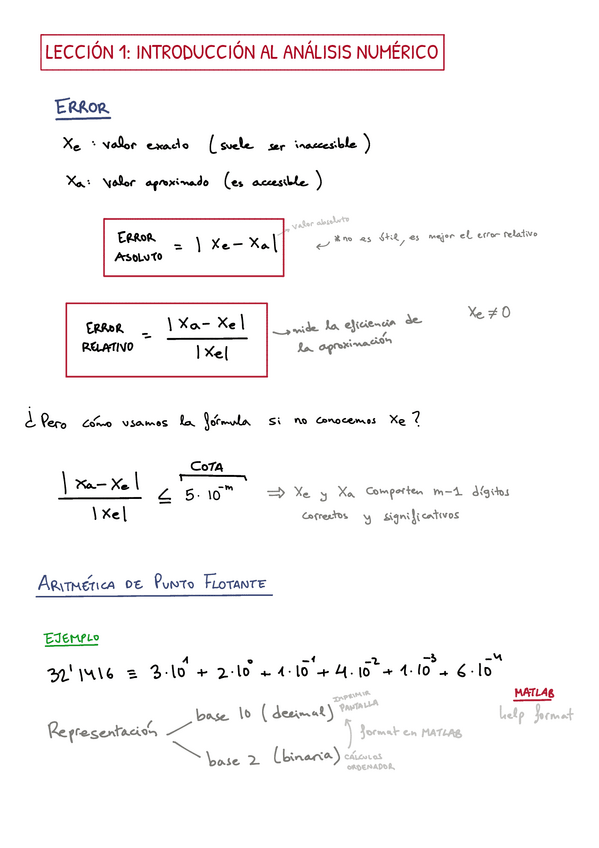 LECCIÓN 1: INTRODUCCIÓN AL ANÁLISIS NUMÉRICO
ERROR
Xe : valor exacto (suele ser inaccesible)
Xa: valor aproximado (es accesible)
ERROR ASOLUTO = |Xe - Xa|
valor absoluto
* no es útil, es mejor el error relativo
ERROR RELATIVO = |Xa - Xe| / |Xe|
→ mide la eficiencia de
la aproximación
Xe ≠ 0
¿Pero cómo usamos la fórmula si no conocemos Xe?
COTA
|Xa - Xe| / |Xe| ≤ 5·10^-m ⇒ Xe y Xa comparten m-1 dígitos
correctos y significativos
ARITMÉTICA DE PUNTO FLOTANTE
EJEMPLO
32'1416 ≡ 3·10^1 + 2·10^0 + 1·10^-1 + 4·10^-2 + 1·10^-3 + 6·10^-4
MATLAB
help format
Representación
base 10 (decimal)
IMPRIMIR
PANTALLA
format en MATLAB
base 2 (binaria)
CÁLCULOS
ORDENADOR